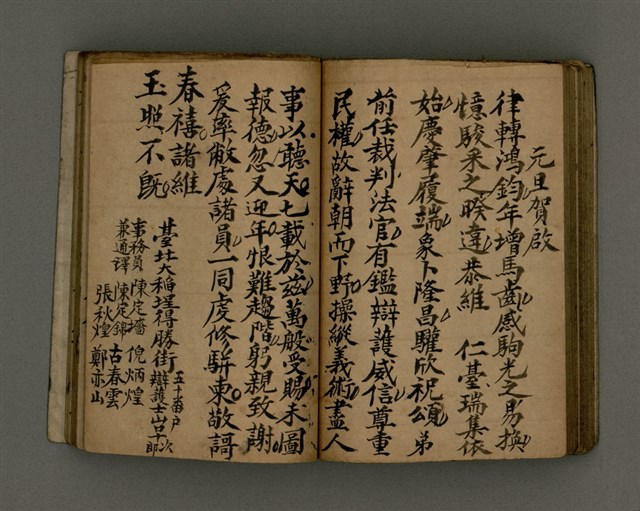 元旦賀啟
律轉鴻鈞年增馬齒感駒光之易換
憶駿采之暌違恭維 仁臺瑞集依
始慶肇履端象卜隆昌驩欣祝頌弟
前任裁判法官有鑑辯護威信尊重
民權故辭朝而下野操縱義術盡人
事以聽天七載於茲萬般受賜未圖
報德忽又迎年恨難趨階躬親致謝
爰率敝處諸員一同虔修駢柬敬謌
春禧諸維
玉照不旣
臺北大稻埕得勝街五十番戶辯護士
事務員 陳定播 倪炳煌
兼通譯 陳定錦 古春雲
張秋煌 鄭亦山